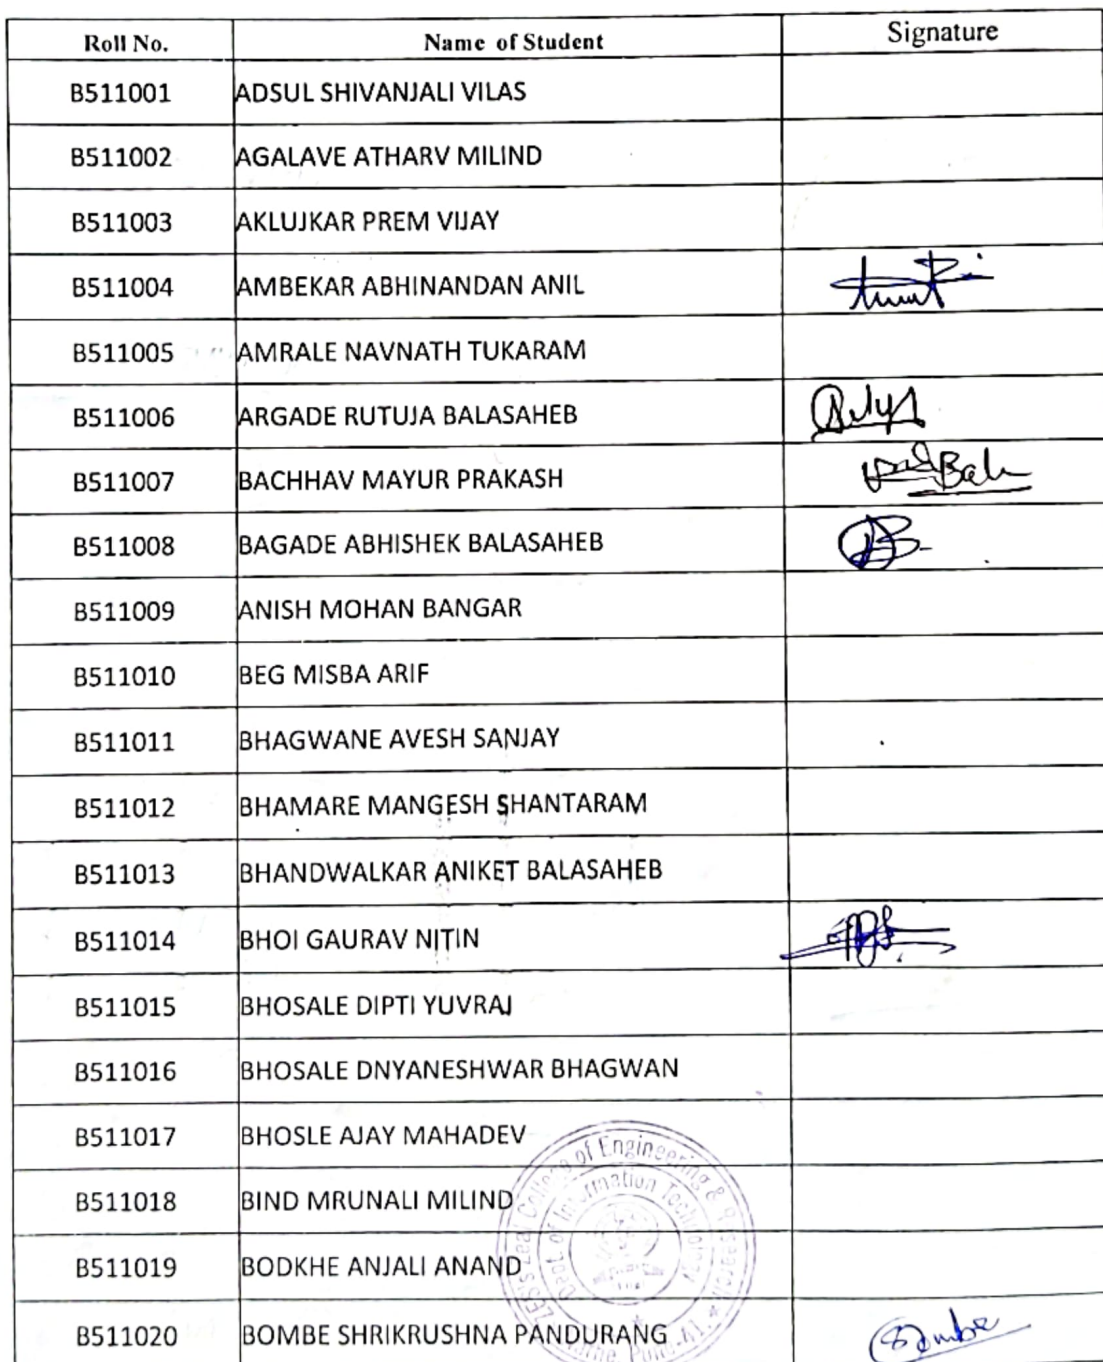 Roll No. Name of Student Signature
B511001 ADSUL SHIVANJALI VILAS
B511002 AGALAVE ATHARV MILIND
B511003 AKLUJKAR PREM VIJAY
B511004 AMBEKAR ABHINANDAN ANIL
B511005 AMRALE NAVNATH TUKARAM
B511006 ARGADE RUTUJA BALASAHEB
B511007 BACHHAV MAYUR PRAKASH
B511008 BAGADE ABHISHEK BALASAHEB
B511009 ANISH MOHAN BANGAR
B511010 BEG MISBA ARIF
B511011 BHAGWANE AVESH SANJAY
B511012 BHAMARE MANGESH SHANTARAM
B511013 BHANDWALKAR ANIKET BALASAHEB
B511014 BHOI GAURAV NITIN
B511015 BHOSALE DIPTI YUVRAJ
B511016 BHOSALE DNYANESHWAR BHAGWAN
B511017 BHOSLE AJAY MAHADEV
B511018 BIND MRUNALI MILIND
B511019 BODKHE ANJALI ANAND
B511020 BOMBE SHRIKRUSHNA PANDURANG
ZES's Zeal College of Engineering & Research
Dept. of Information Technology